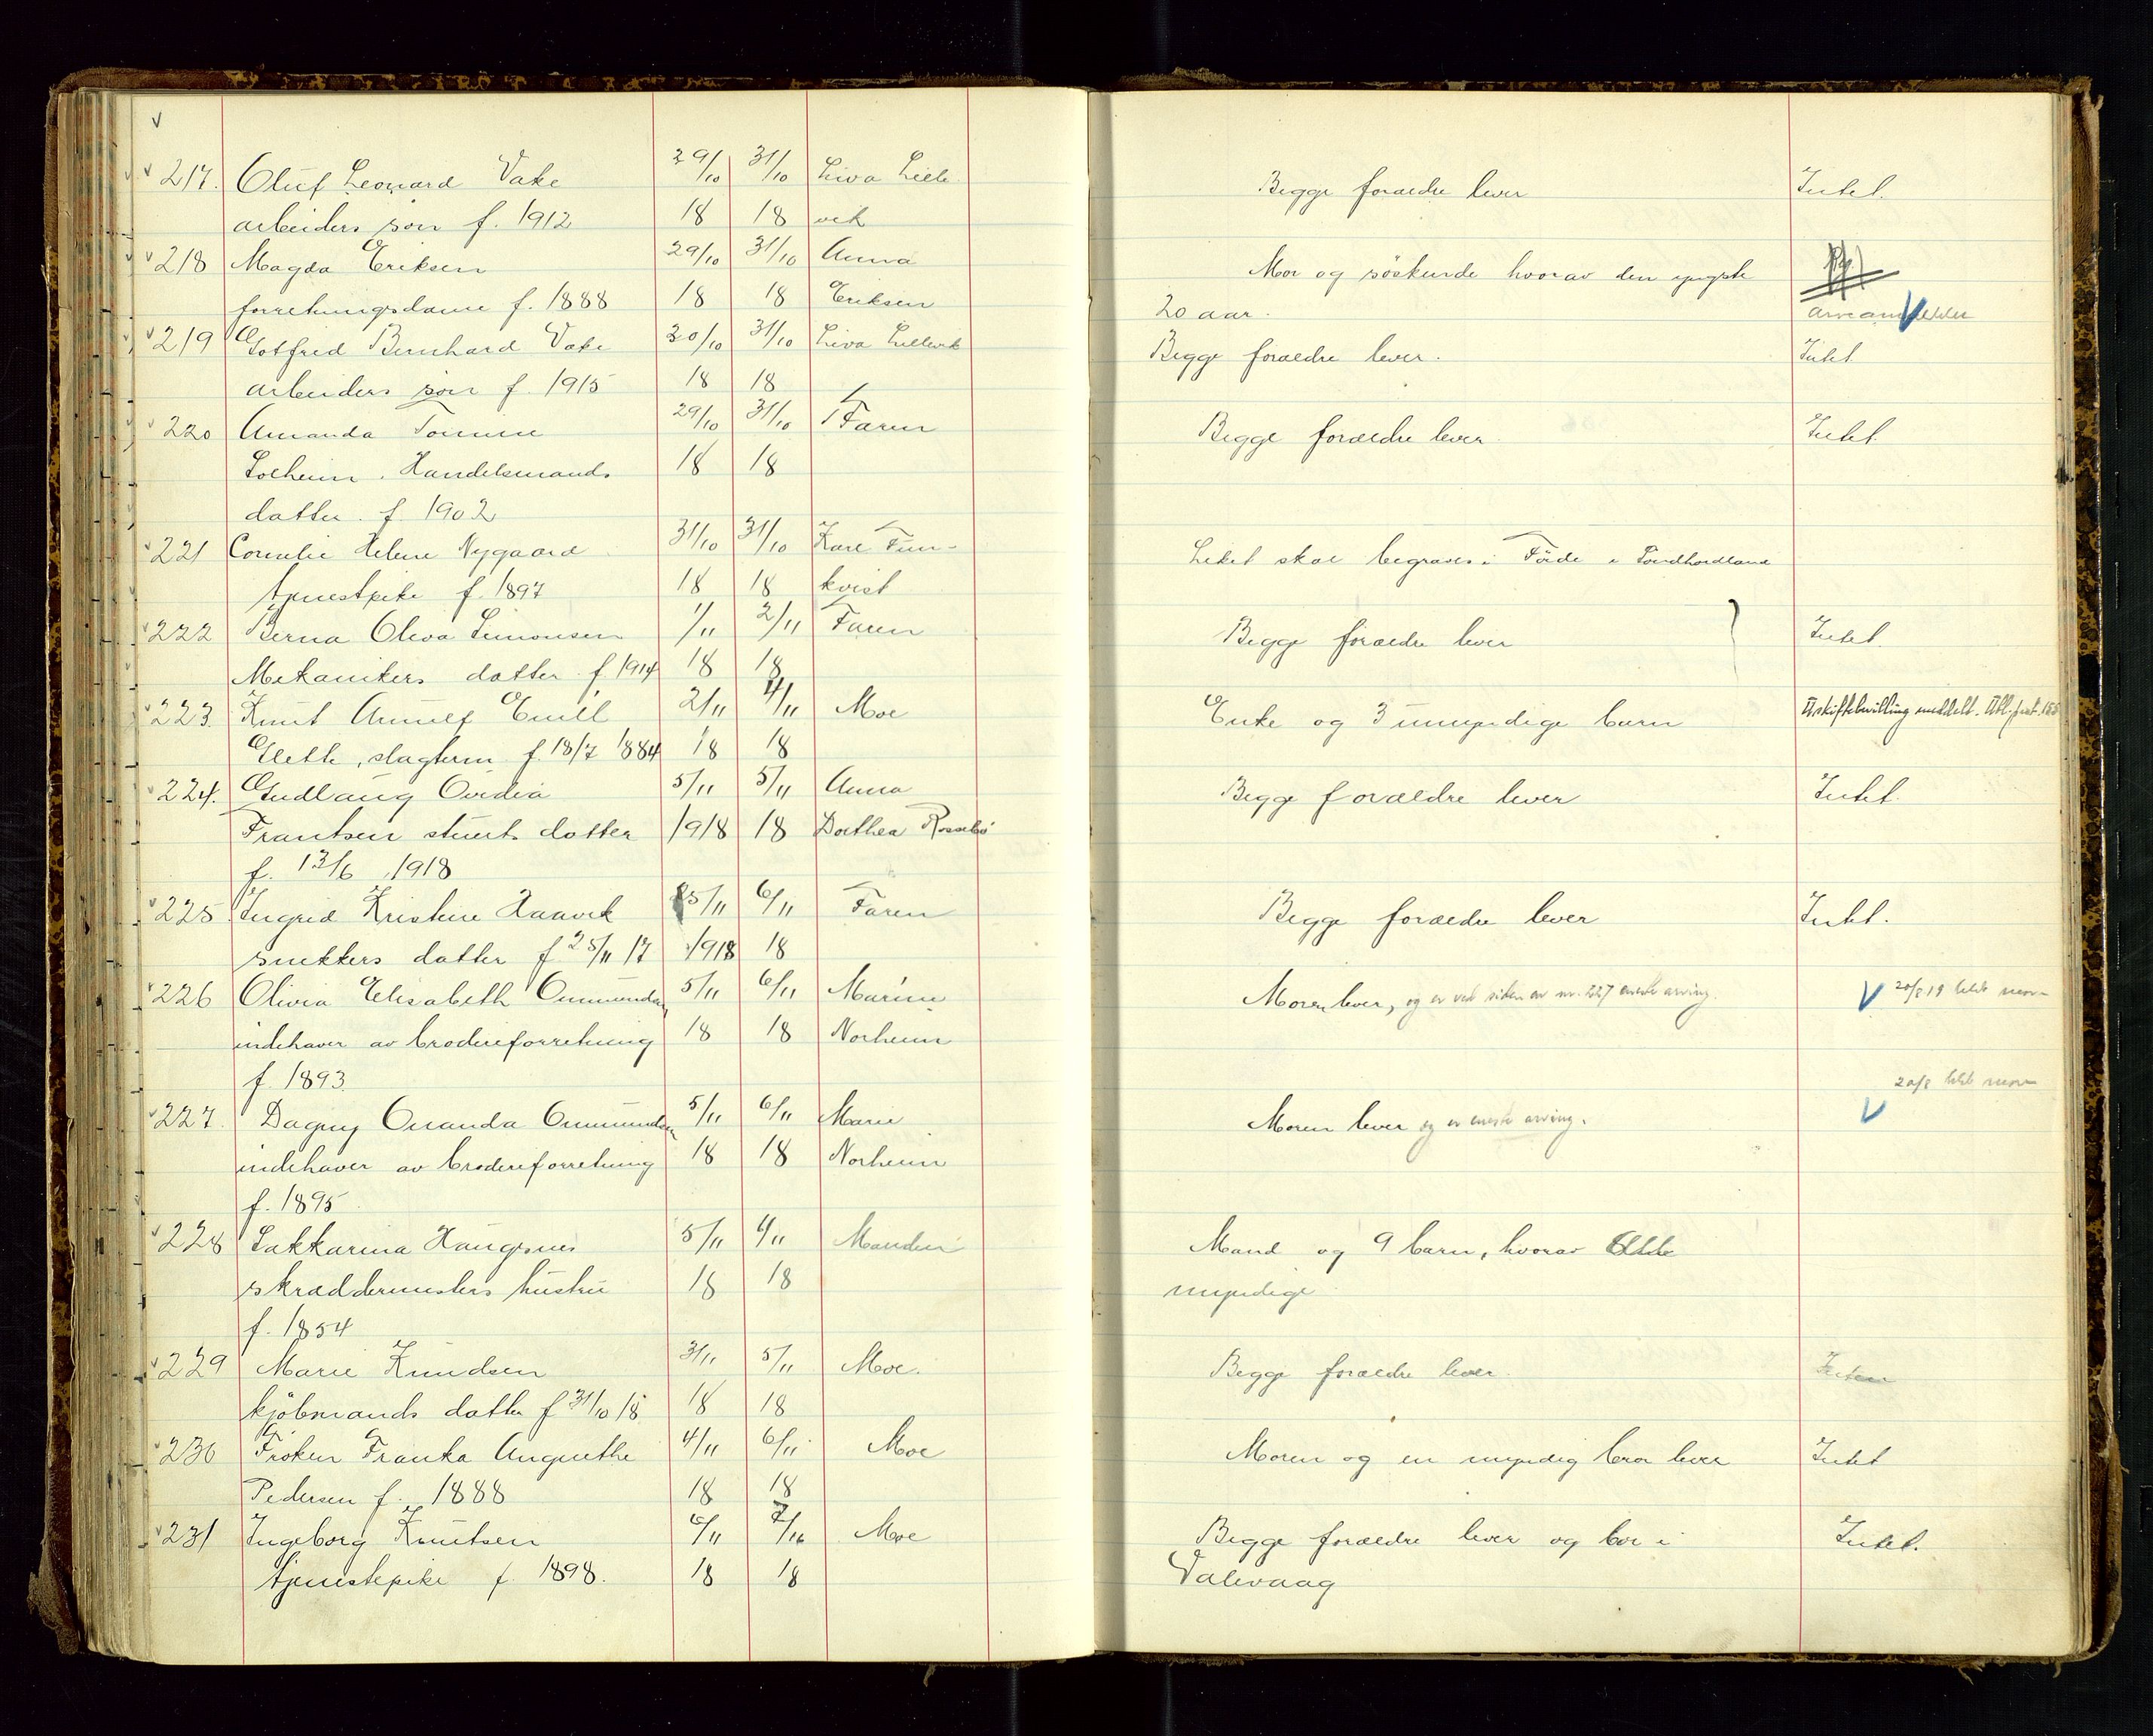 217. Oluf Leonard Vake 29/10 31/10 Liva Lille Begge forældre lever Intet.
arbeiders søn f. 1912 18 18 vik
218 Magda Eriksen 29/10 31/10 Anna Mor og søskende hvorav den yngste
forretningsdame f. 1888 18 18 Eriksen 20 aar.
219 Gotfred Bernhard Vake 30/10 31/10 Liva Lillevik Begge forældre lever. Intet
arbeiders søn f. 1915 18 18
220 Amanda Tomine 29/10 31/10 Faren Begge forældre lever. Intet.
Solheim. Handelsmands 18 18
datter. f. 1902
221 Cornelie Helene Nygaard 31/10 31/10 Karl Fun- Liket skal begraves i Førde i Søndhordland
tjenestpike f. 1897 18 18 kvist
222 Berna Oliva Simonsen 1/11 2/11 Faren Begge forældre lever Intet.
Mekanikers datter f. 1914 18 18
223. Knut Arnulf Emil 2/11 4/11 Moe Enke og 3 umyndige barn Uskiftebevilling meddelt.
Gleth, slagterm f. 18/7 1884 18 18
224. Gudlaug Ovidia 5/11 5/11 Anna Begge forældre lever Intet.
Frantsen stuerts datter 1918 18 Dorthea Rossebø
f. 13/6 1918
225 Ingrid Kristine Haavik 5/11 6/11 Faren Begge forældre lever Intet.
snekkers datter f 25/11 17 1918 18
226 Olivia Elisabeth Ommundsen 5/11 6/11 Marine Moren lever, og er ved siden av nr. 227 eneste arving. 20/8 19
indehaver av broderiforretning 18 18 Norheim
f. 1893. 20/8
227. Dagny Onanda Ommundsen 5/11 6/11 Marie Moren lever og er eneste arving.
indehaver av broderiforretning 18 18 Norheim
f. 1895
228 Sakkarina Haugsnes 5/11 4/11 Manden Mand og 9 barn, hvorav
skræddermesters hustru 18 18 myndige
f. 1854
229 Marie Knudsen 3/11 5/11 Moe. Begge forældre lever.
kjøbmands datter f 31/10 18 18 18
230 Frøken Franka Angnethe 4/11 6/11 Moe Moren og en myndig bror lever Intet
Pedersen f. 1888 18 18
231 Ingeborg Knutsen 6/11 7/11 Moe Begge forældre lever og bor i Intet.
tjenestepike f. 1898. 18 18 Valevaag